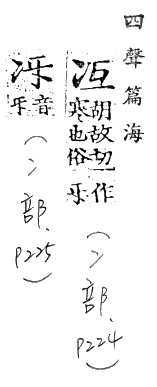 四聲篇海
冱 胡故切 寒也俗作
(冫部、P224)
音
(冫部、P225)